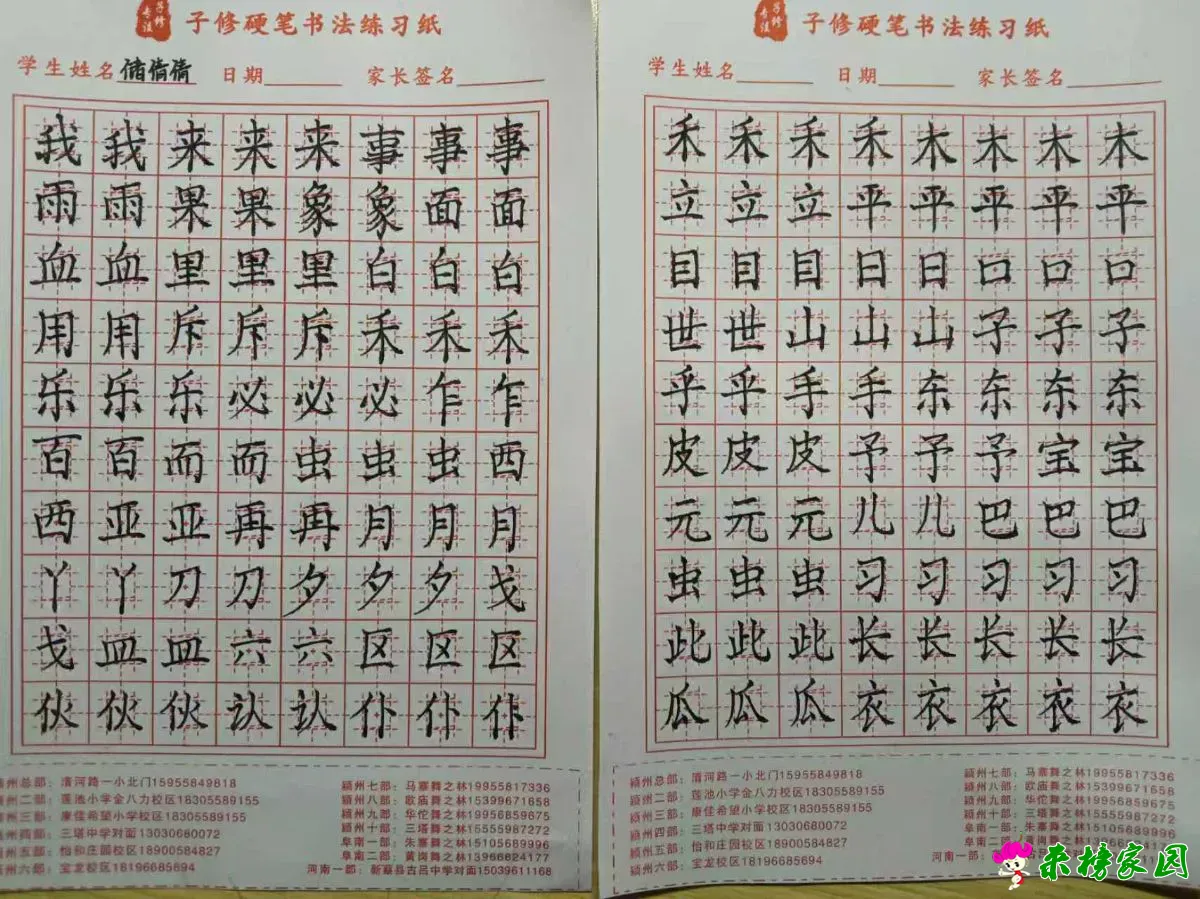 子修硬笔书法练习纸
学生姓名 储倩倩 日期 家长签名
我我来来来事事事
雨雨果果象象面面
血血里里里白白白
用用斥斥斥禾禾禾
乐乐乐必必必乍乍
百百而而虫虫虫西
西亚亚再再月月月
丫丫刀刀夕夕夕戈
戈皿皿六六区区区
伙伙伙认认仆仆仆
州总部：清河路一小北门15955849818
颍州二部：莲池小学金八力校区18305589155
颍州三部：康佳希望小学校区18305589155
颍州四部：三塔中学对面13030680072
颍州五部：怡和庄园校区18900584827
颍州六部：宝龙校区18196685694
颍州七部：马寨舞之林19955817336
颍州八部：欧庙舞之林15399671658
颍州九部：华佗舞之林19956859675
颍州十部：三塔舞之林15555987272
阜南一部：朱寨舞之林15105689996
阜南二部：黄岗舞之林13966824177
河南一部：新蔡县古吕中学对面15039611168
子修硬笔书法练习纸
学生姓名 日期 家长签名
禾禾禾禾木木木木
立立立平平平平平
目目目日日口口口
世世山山山子子子
乎乎手手东东东东
皮皮皮予予予宝宝
元元元儿儿巴巴巴
虫虫虫习习习习习
此此此长长长长长
瓜瓜瓜衣衣衣衣衣
颍州总部：清河路一小北门15955849818
颍州二部：莲池小学金八力校区18305589155
颍州三部：康佳希望小学校区18305589155
颍州四部：三塔中学对面13030680072
颍州五部：怡和庄园校区18900584827
颍州六部：宝龙校区18196685694
颍州七部：马寨舞之林19955817336
颍州八部：欧庙舞之林15399671658
颍州九部：华佗舞之林19956859675
颍州十部：三塔舞之林15555987272
阜南一部：朱寨舞之林15105689996
河南一部：
来榜家园